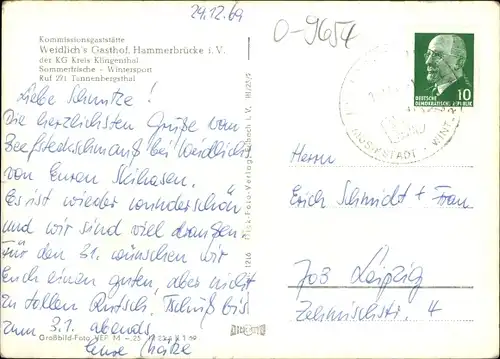 29.12.69
O-9654
Kommissionsgaststätte
Weidlich's Gasthof, Hammerbrücke i. V.
der KG Kreis Klingenthal
Sommerfrische - Wintersport
Ruf 271 Tannenbergsthal
Liebe Schmitze!
Die herzlichsten Grüße vom
Beefsteckschmauß bei Weidlich
von Euren Skihasen.
Es ist wieder wunderschön
und wir sind viel draußen.
Für den 31. wünschen wir
Euch einen guten, aber nicht
zu tollen Rutsch. Tschüß bis
zum 3.1. abends
Eure
Großbild-Foto VEP M -,25
1216 Dick-Foto-Verlag, Erlbach i. V.
DEUTSCHE
DEMOKRATISCHE REPUBLIK
10
MUSIKSTADT - WINT
Herrn
Erich Schmidt + Frau
703 Leipzig
4